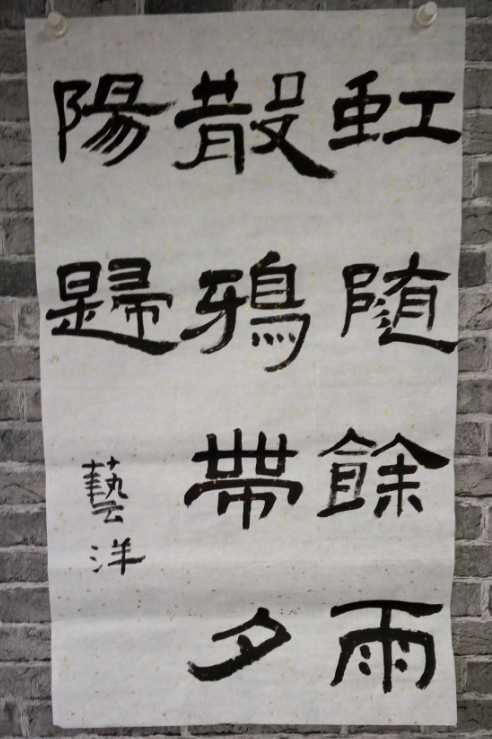 虹隨餘雨
散鴉帶夕
陽歸
藝洋